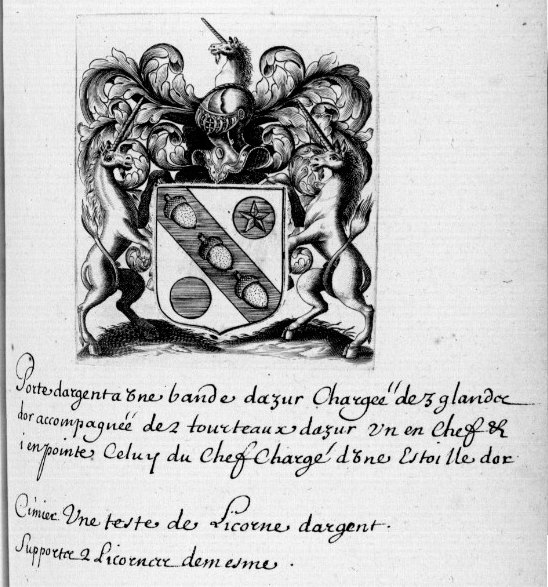 Porte dargent a vne bande dazur Chargeé de 3 glandz
dor accompagnéé de 2 tourteaux dazur vn en Chef &
i en pointe Celuy du Chef Chargé d'vne Estoille dor
Cimier Vne teste de Licorne dargent.
Supportz 2 Licornez de mesme.